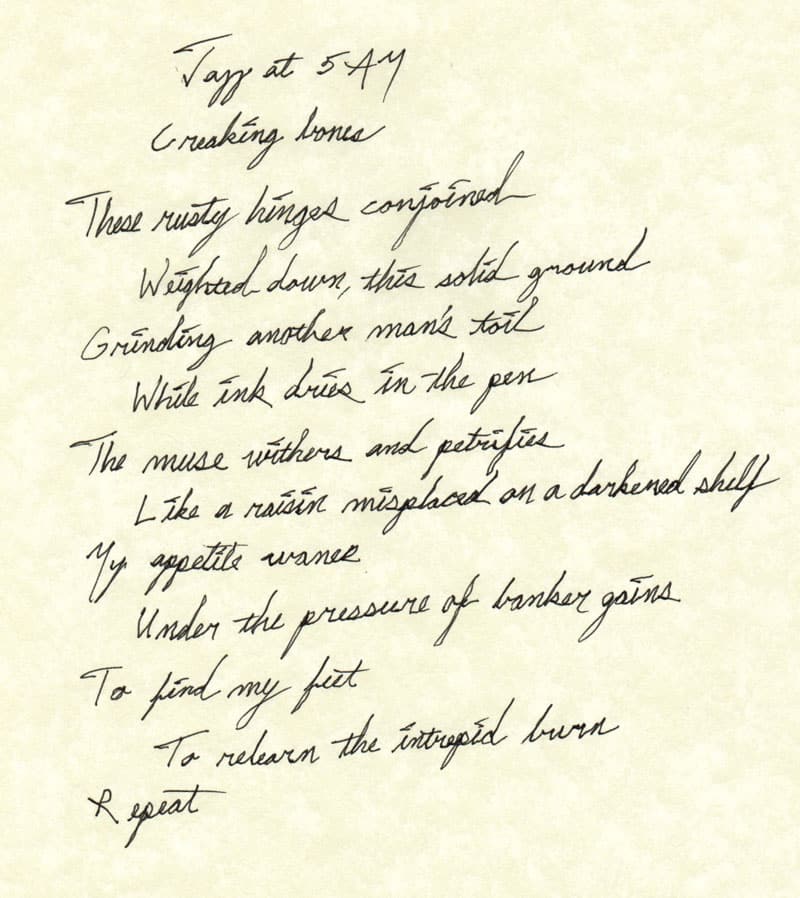 Jazz at 5 AM
Creaking bones
These rusty hinges conjoined
Weighted down, this solid ground
Grinding another man's toil
While ink dries in the pen
The muse withers and petrifies
Like a raisin misplaced on a darkened shelf
My appetite wanes
Under the pressure of banker gains
To find my feet
To relearn the intrepid burn
Repeat